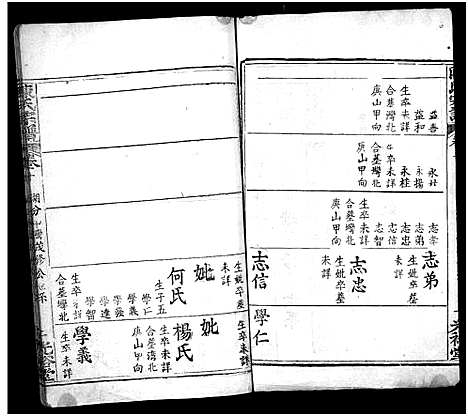 益善
益和
生卒未詳
合墓灣北
庚山甲向
永壯
永揚
永桂
生卒未詳
合墓灣北
庚山甲向
志孝
志弟
志忠
志智
生卒未詳
合墓灣北
庚山甲向
志弟
生妣卒墓
未詳
志忠
生妣卒墓
未詳
志信
學仁
妣
生卒墓
未詳
何氏
生子五
學仁
學義
學達
學智
生卒未詳
合墓灣北
妣
楊氏
生卒未詳
合墓灣北
學義
生卒未詳